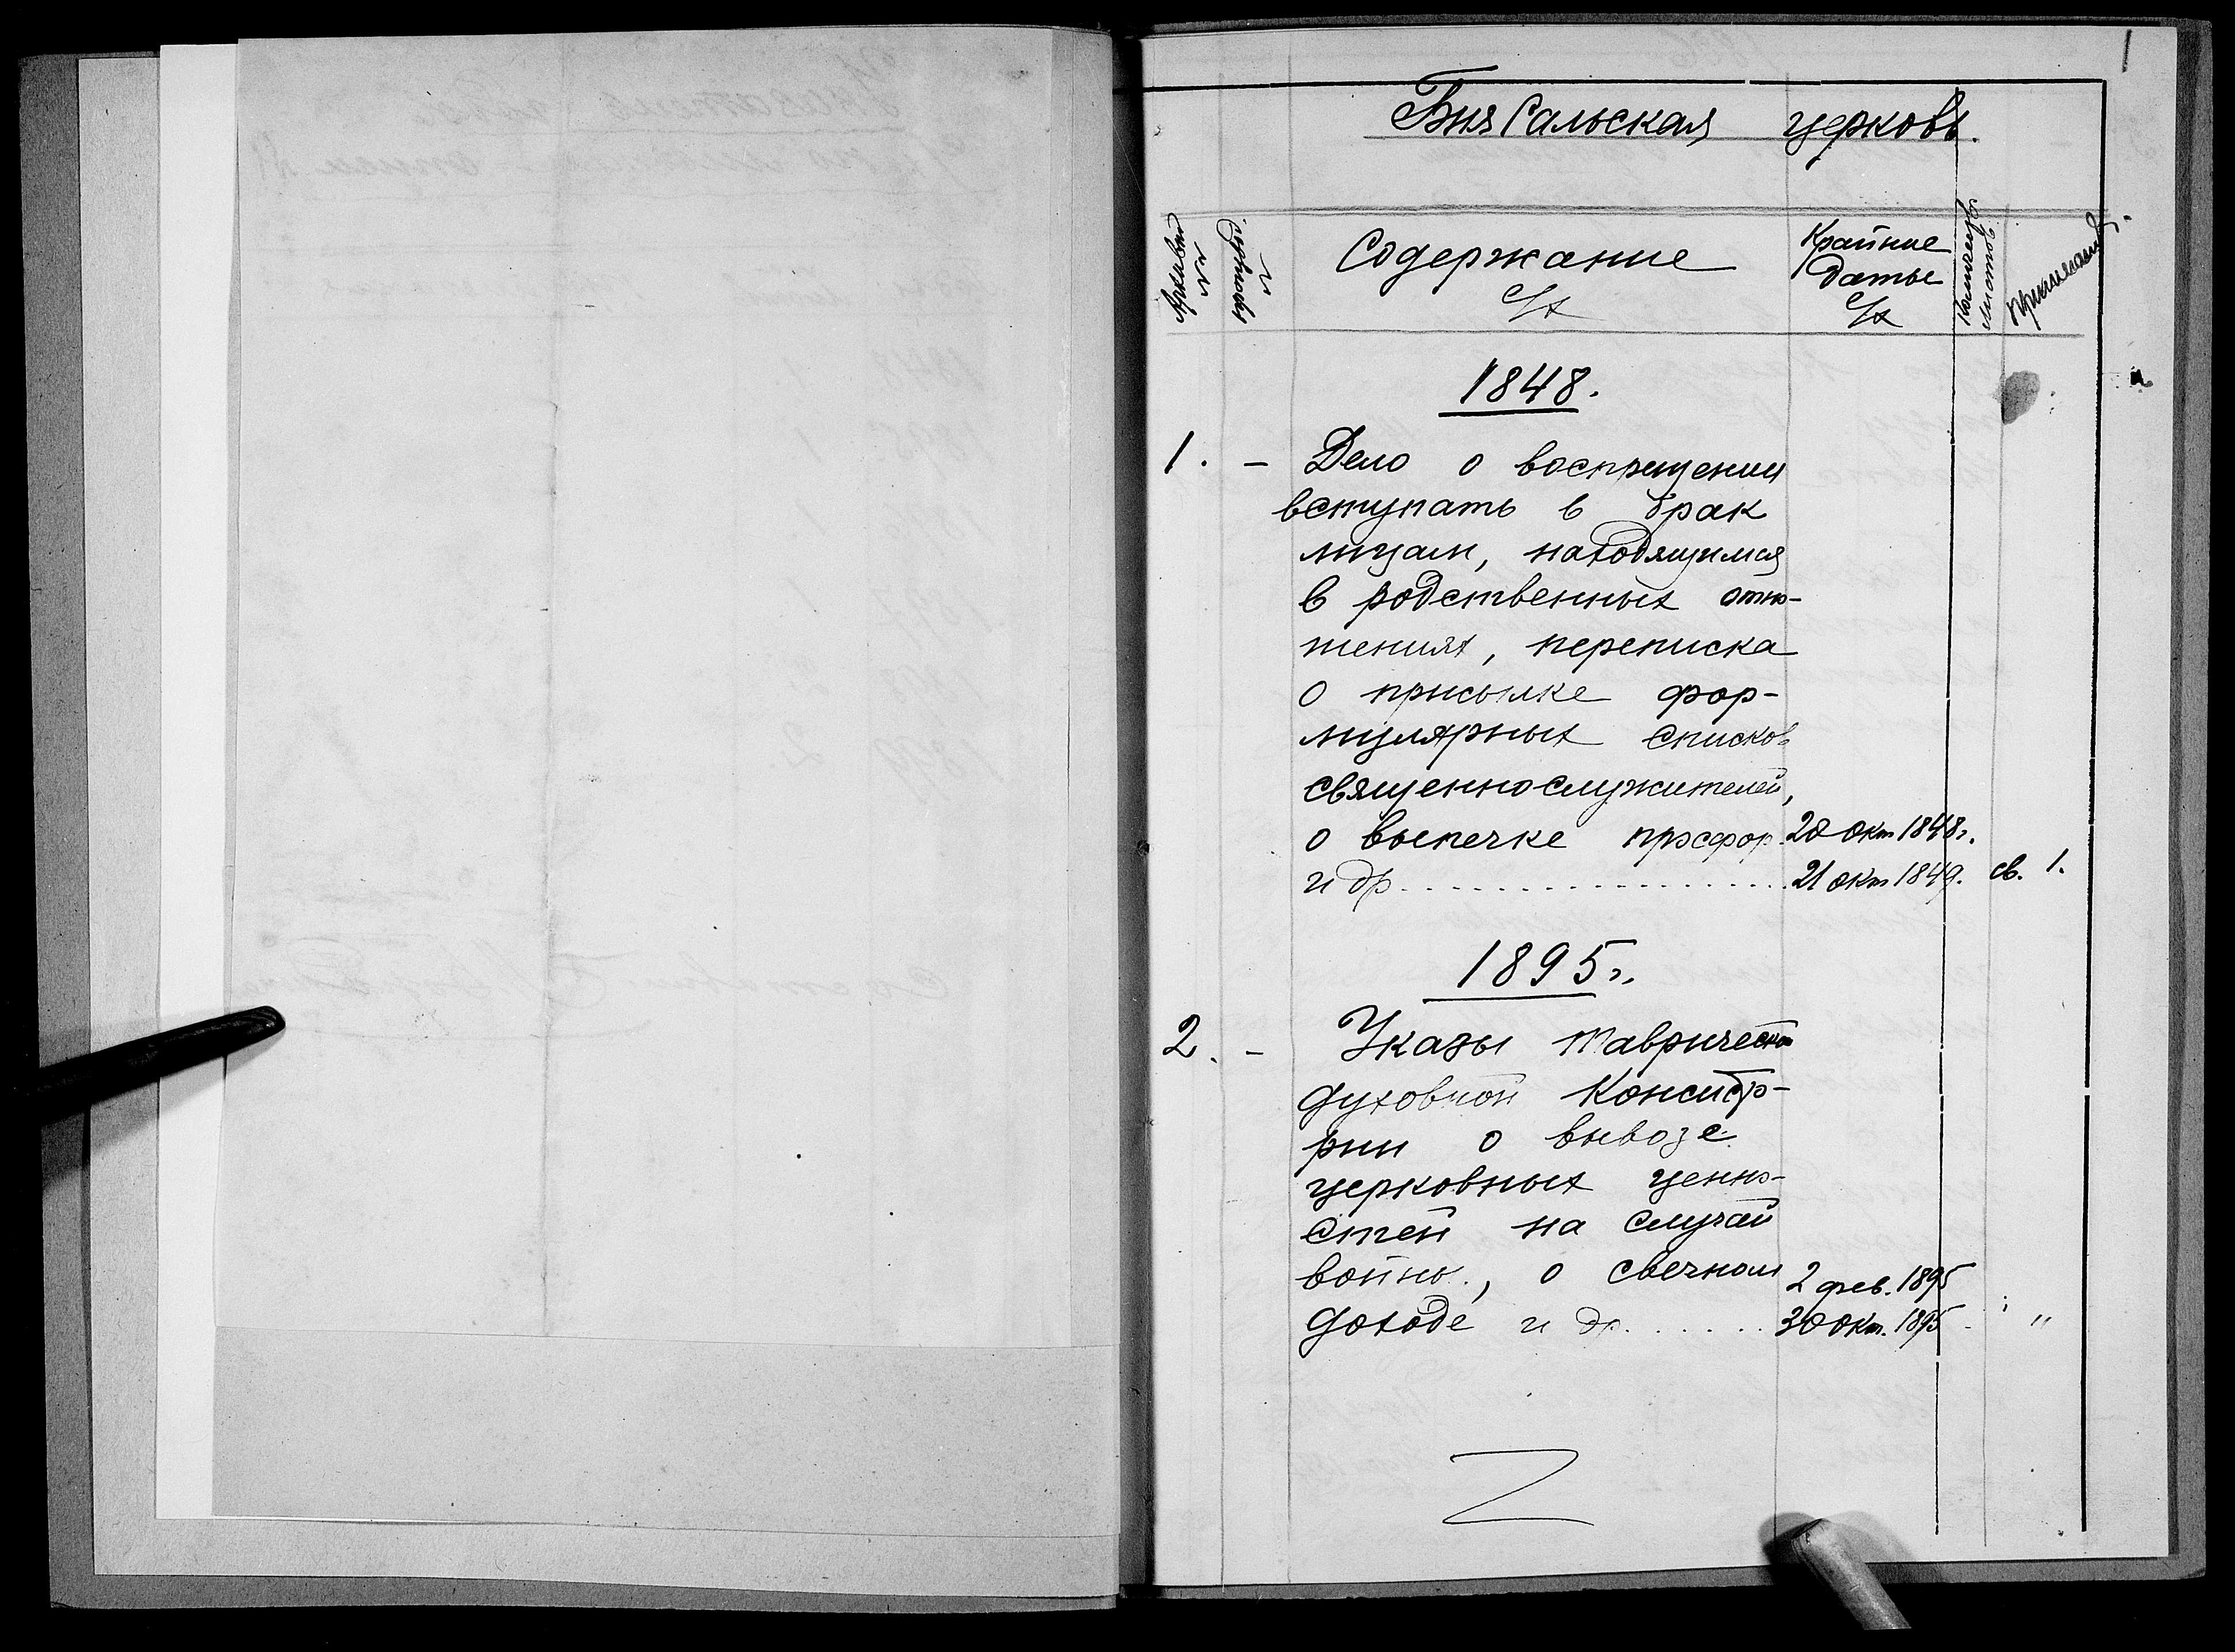 1
Бия Сальская церковь.
Архивный №
Содержание д/х
Крайние даты д/х
Количество листов
Примечание
1848.
1. - Дело о воспрещении
вступать в брак
лицам, находящимся
в родственных отно-
шениях, переписка
о присылке фор-
мулярных списков
священнослужителей,
о выпечке просфор 20 окт 1848г.
и др. 21 окт 1849. св. 1.
1895г.
2. - Указы Таврической
духовной Консисто-
рии о вывозе
церковных ценно-
стей на случай
войны, о свечном 2 фев. 1895
доходе и др. 30 окт. 1895 - "